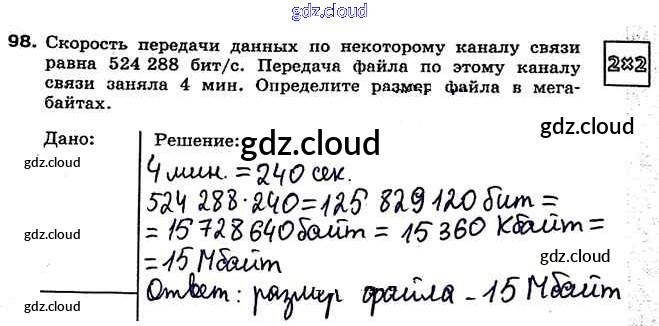 gdz.cloud
98. Скорость передачи данных по некоторому каналу связи
равна 524 288 бит/с. Передача файла по этому каналу
связи заняла 4 мин. Определите размер файла в мега-
байтах.
2×2
Дано:
Решение:
gdz.cloud
gdz.cloud
gdz.cloud
4 мин. = 240 сек.
524 288·240=125 829 120 бит =
gdz.cloud
= 15 728 640 байт = 15 360 Кбайт =
gdz.cloud
= 15 Мбайт
gdz.cloud
gdz.cloud
Ответ: размер файла – 15 Мбайт